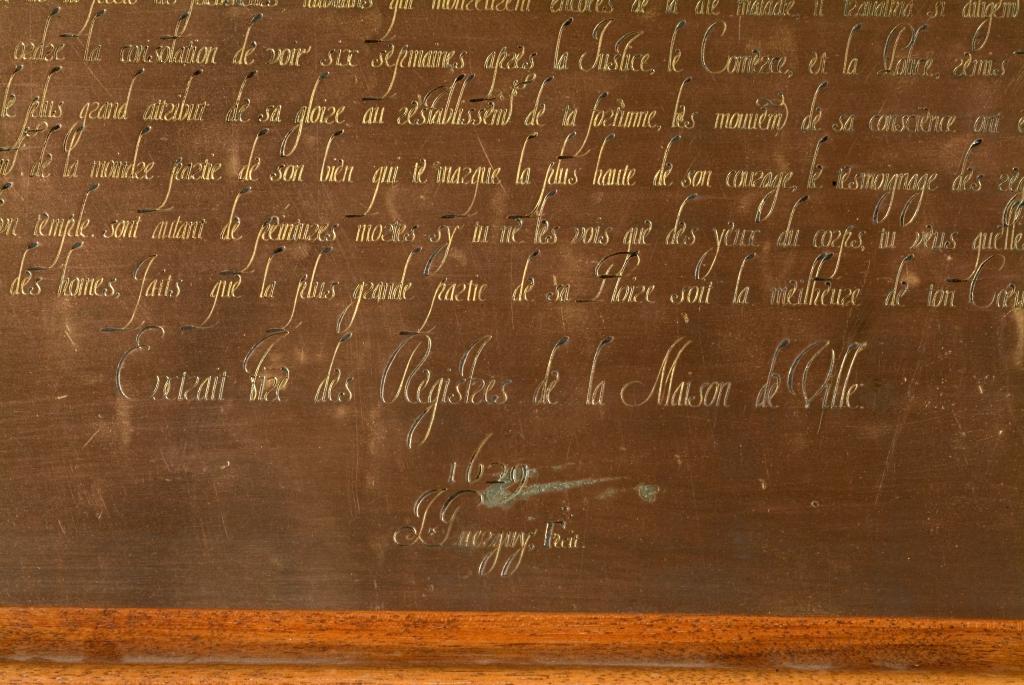 qui encores de la dte maladie, il travaillma si diligem
ordre la consolation de voir six sepmaines apres la Justice, le Comerce, et la Police, remis
le plus grand attribut de sa gloire au restablissemt de ta fortune, les mouuemt de sa conscience ont
de la moindre partie de son bien qui te marque la plus haute de son courage, le tesmoignage des
temple. sont autant de peintures mortes, sy tu ne les vois que des yeux du corps, tu veus quelles
des homes, faits que la plus grande partie de sa Gloire soit la meilheure de ton Coeur
Extrait tiré des Registres de la Maison de Ville.
1629
J Guerguy, Fecit.